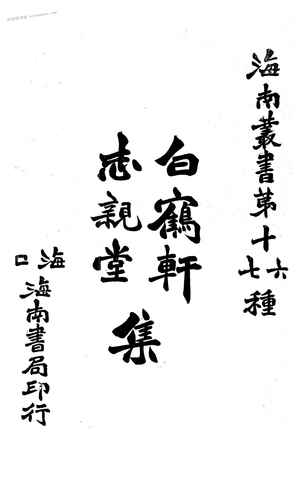 海南叢書第十六七種
白鶴軒
志親堂
集
海口海南書局印行